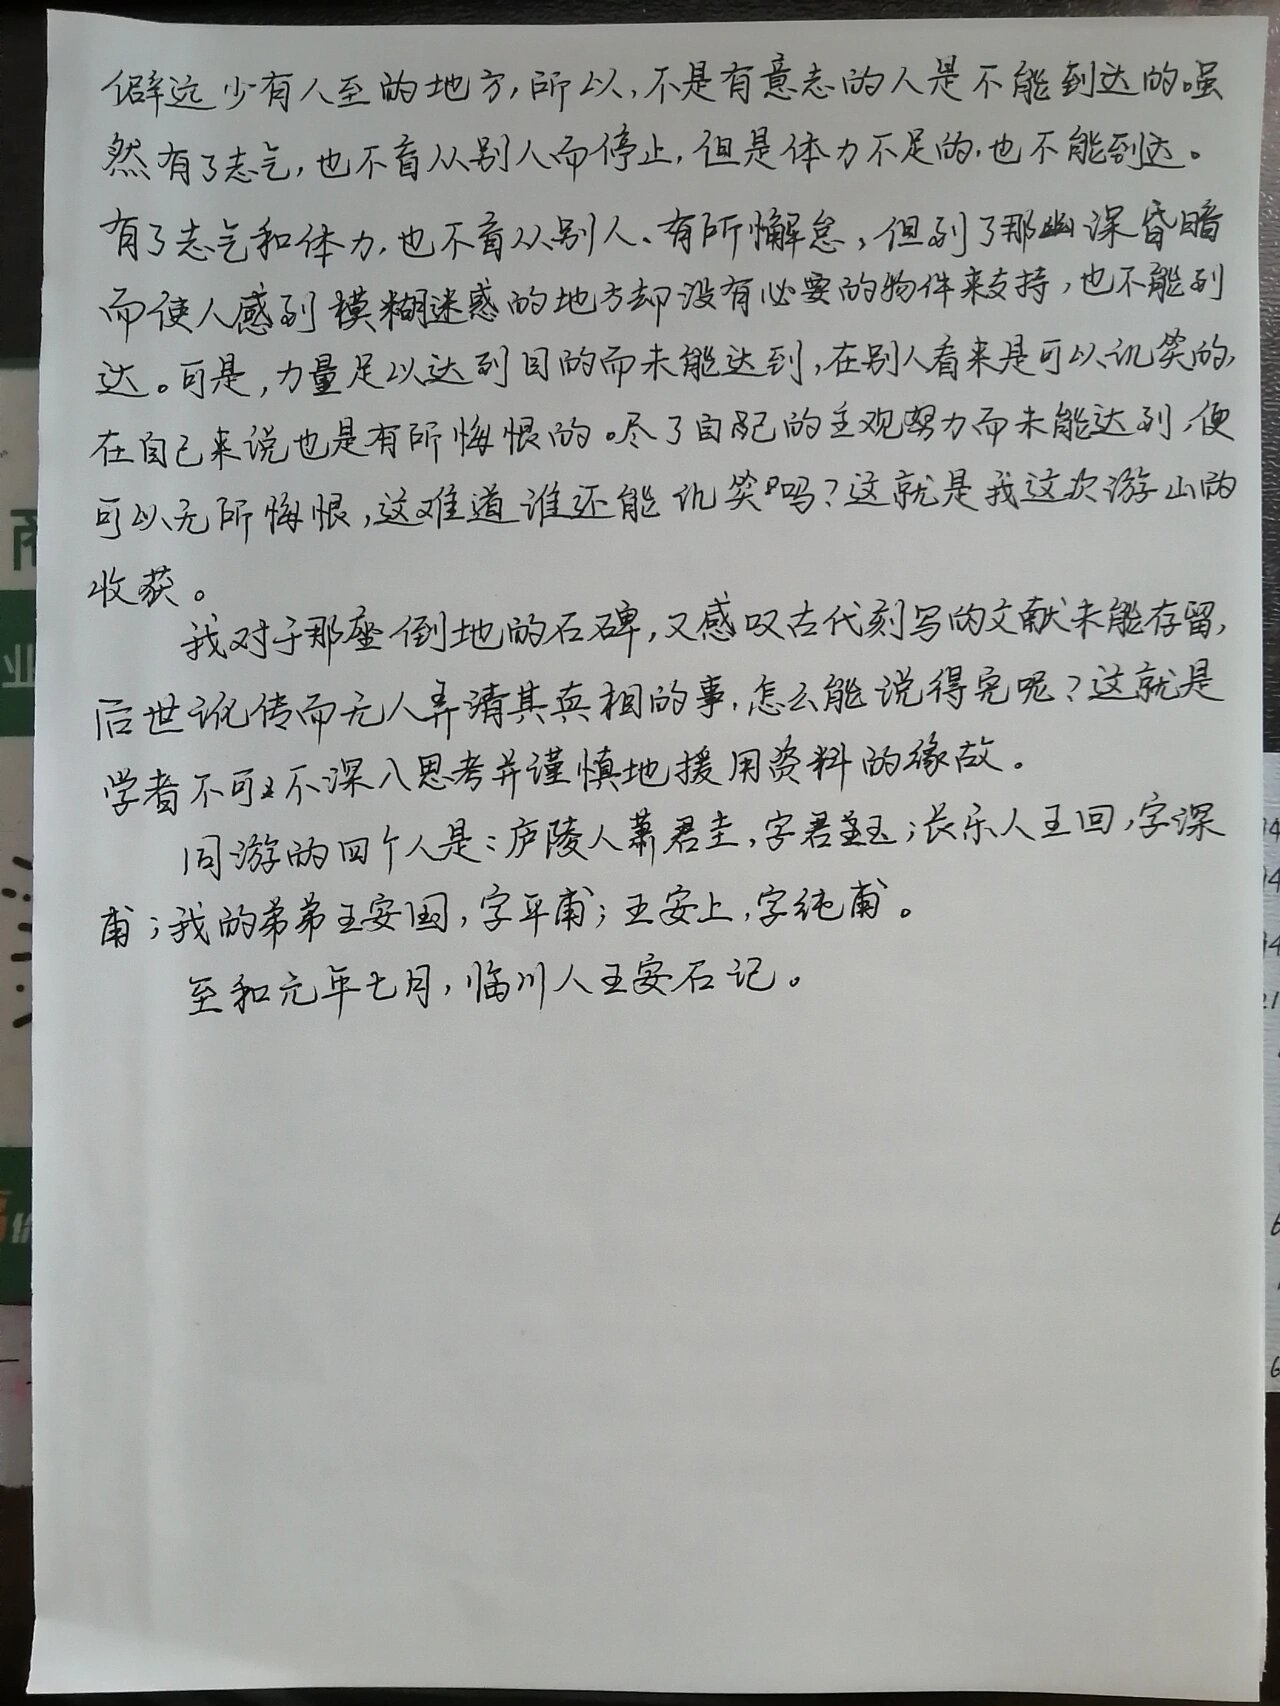 僻远少有人至的地方,所以,不是有意志的人是不能到达的。虽
然有了志气,也不盲从别人而停止,但是体力不足的,也不能到达。
有了志气和体力,也不盲从别人、有所懈怠,但到了那幽深昏暗
而使人感到模糊迷惑的地方却没有必要的物件来支持,也不能到
达。可是,力量足以达到目的而未能达到,在别人看来是可以讥笑的,
在自己来说也是有所悔恨的。尽了自己的主观努力而未能达到,便
可以无所悔恨,这难道谁还能讥笑吗?这就是我这次游山的
收获。
我对于那座倒地的石碑,又感叹古代刻写的文献未能存留,
后世讹传而无人弄清其真相的事,怎么能说得完呢?这就是
学者不可不深入思考并谨慎地援用资料的缘故。
同游的四个人是:庐陵人萧君圭,字君玉;长乐人王回,字深
甫;我的弟弟王安国,字平甫;王安上,字纯甫。
至和元年七月,临川人王安石记。
业